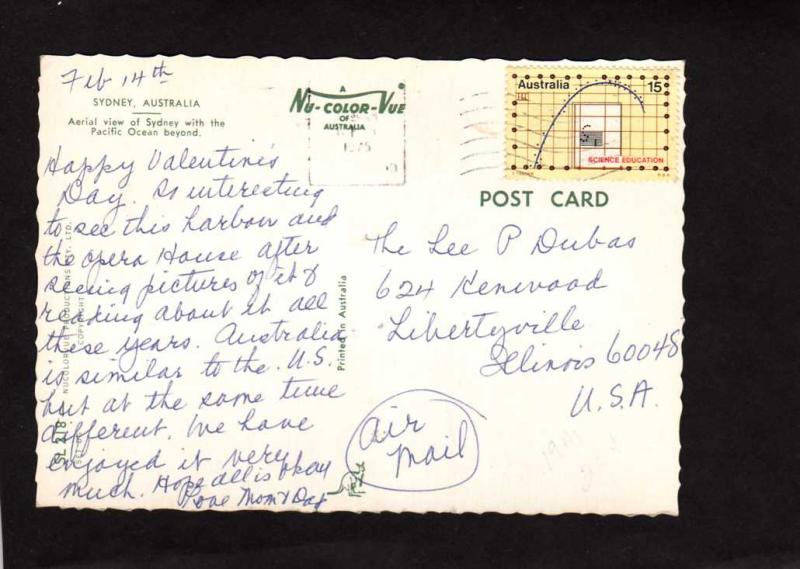 Feb 14th
SYDNEY, AUSTRALIA
Aerial view of Sydney with the
Pacific Ocean beyond.
Happy Valentine's
Day. So interesting
to see this harbour and
the opera House after
seeing pictures of it &
reading about it all
these years. Australia
is similar to the U.S.
but at the same time
different. We have
enjoyed it very
much. Hope all is okay
Love Mom & Dad
A
NU-COLOR-VUE
OF
AUSTRALIA
1975
Australia 15
SCIENCE EDUCATION
POST CARD
The Lee P Dubas
624 Kenwood
Libertyville
Illinois 60048
U.S.A.
Air
Mail
Printed in Australia
NUCOLORVUE PRODUCTIONS PTY. LTD.
COPYRIGHT